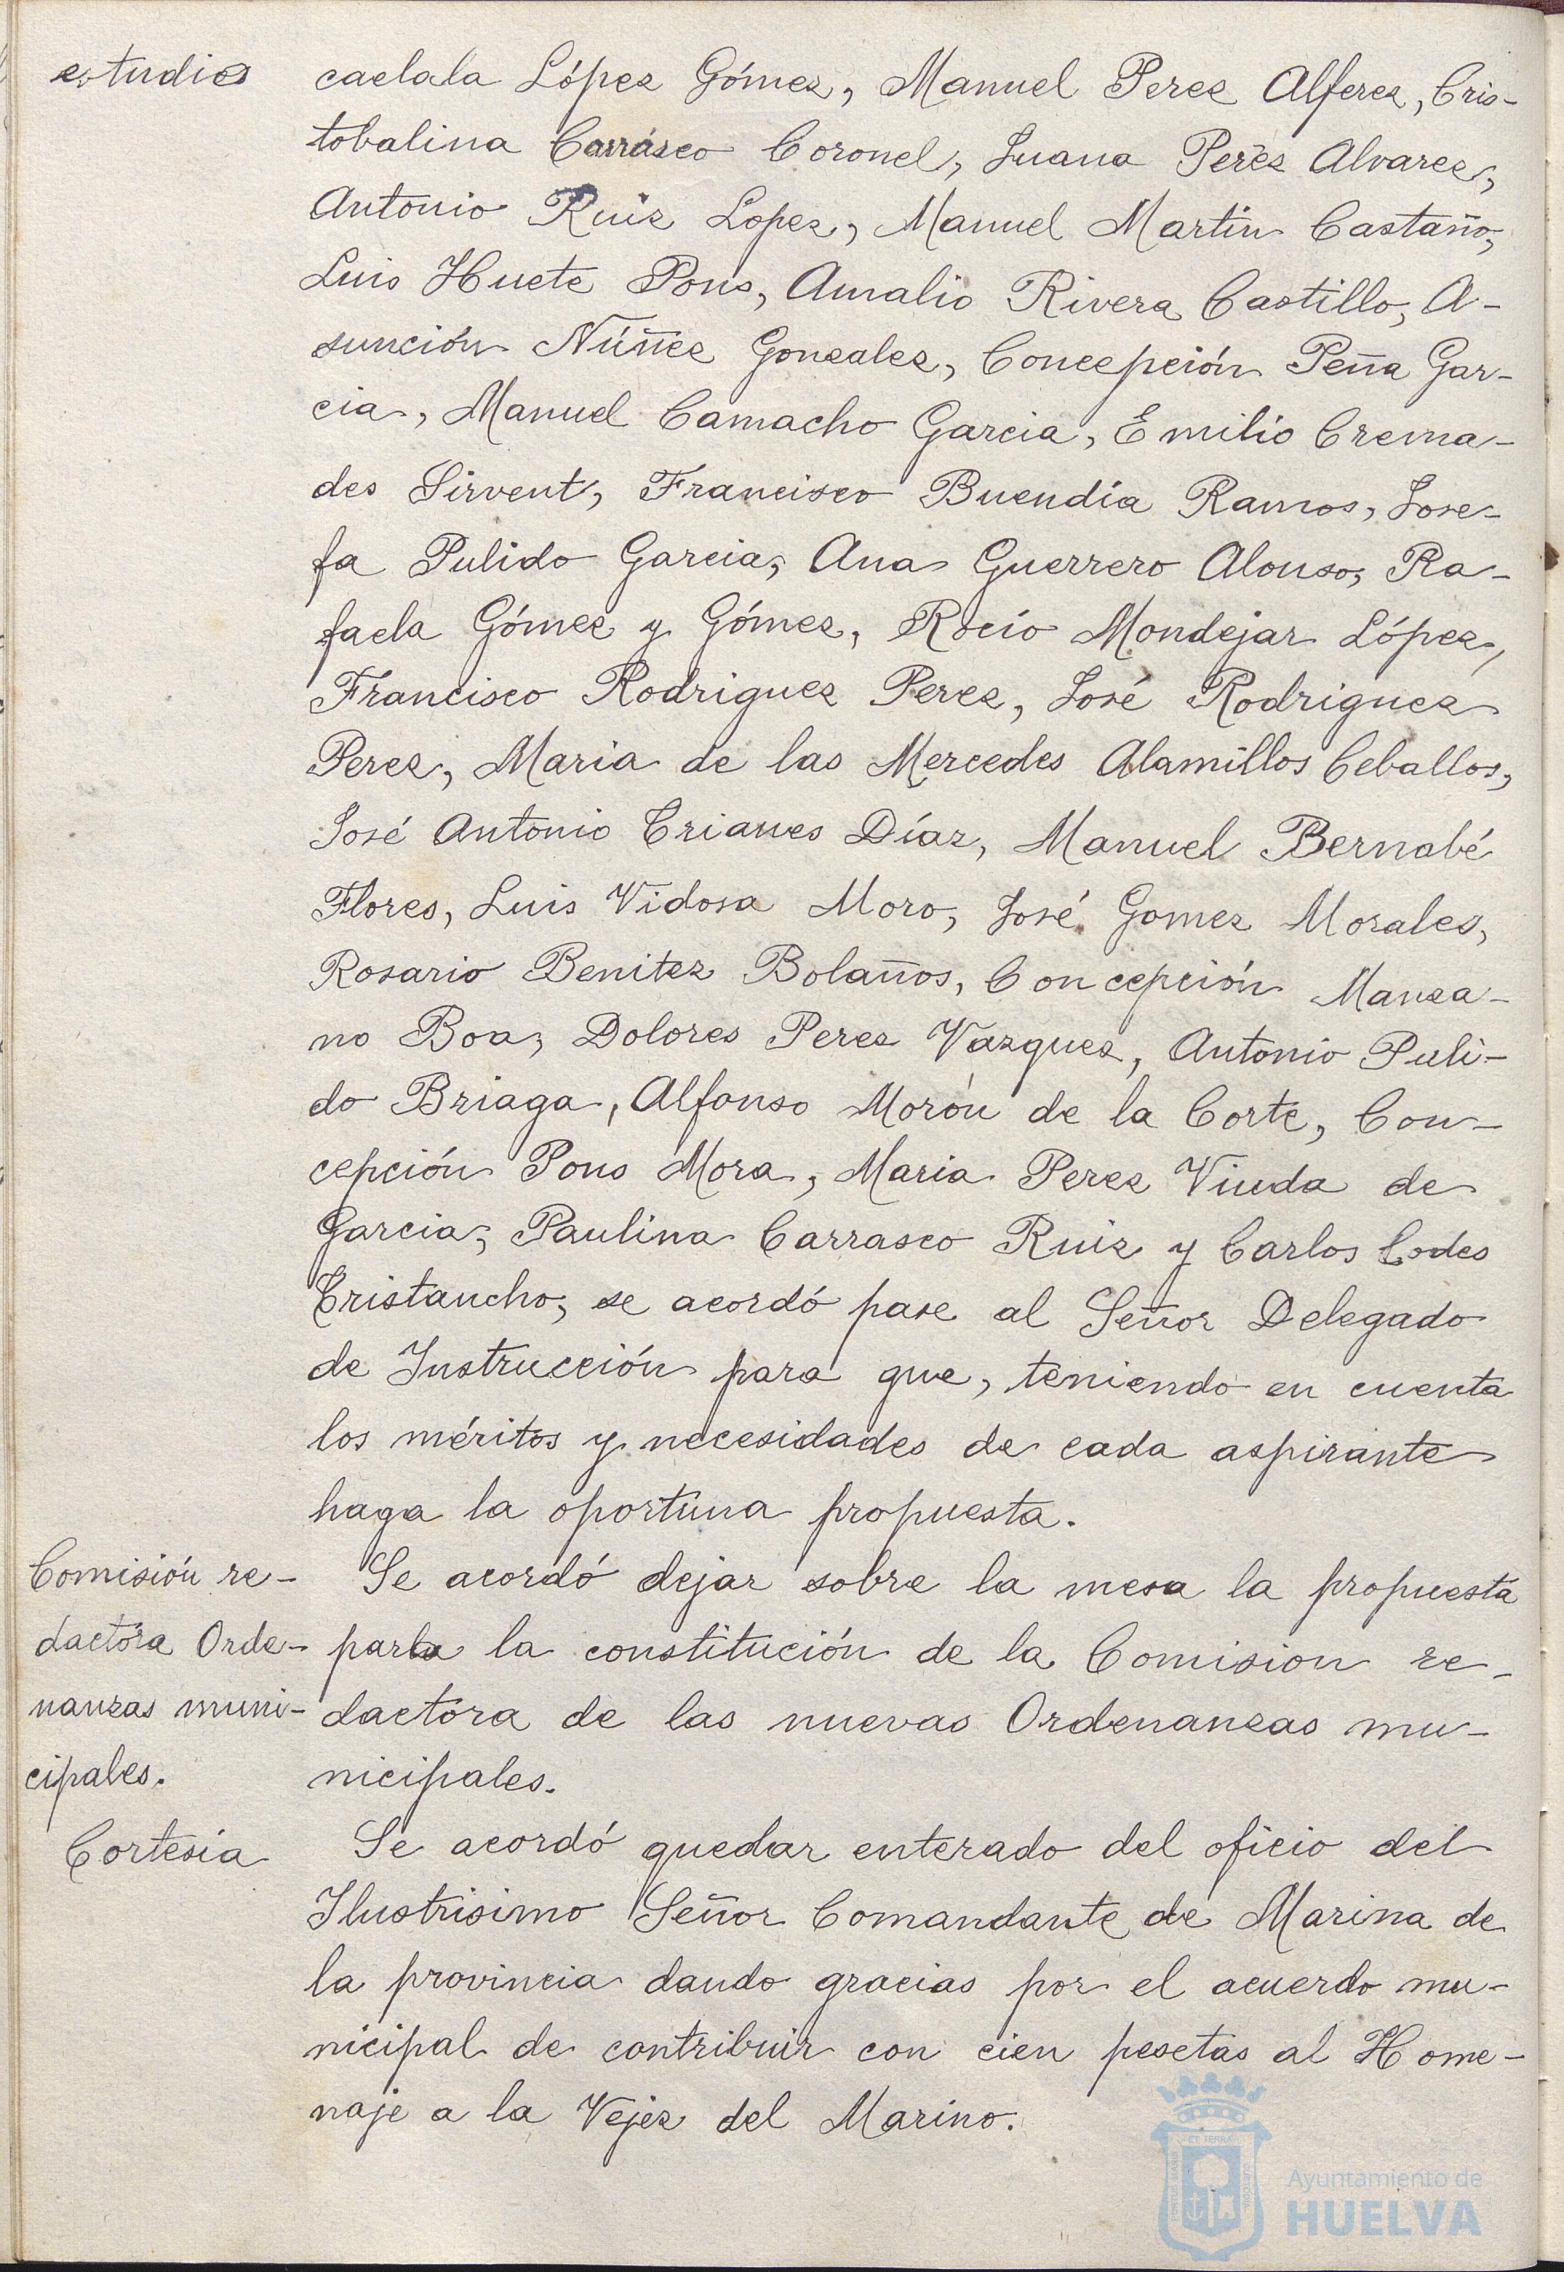 estudios
caelala López Gómez, Manuel Perez Alferez, Cris-
tobalina Carrásco Coronel, Juana Peréz Alvarez,
Antonio Ruiz Lopez, Manuel Martin Castaño,
Luis Huete Pons, Amalio Rivera Castillo, A-
sunción Núñez Gonzalez, Concepción Peña Gar-
cia, Manuel Camacho Garcia, Emilio Crema-
des Sirvent, Francisco Buendía Ramos, Jose-
fa Pulido Garcia, Ana Guerrero Alonso, Ra-
faela Gómez y Gómez, Rocío Mondejar López,
Francisco Rodriguez Perez, José Rodriguez
Perez, Maria de las Mercedes Alamillos Ceballos,
José Antonio Trianes Díaz, Manuel Bernabé
Flores, Luis Vidosa Moro, José Gomez Morales,
Rosario Benitez Bolaños, Concepción Manza-
no Boa, Dolores Perez Vazquez, Antonio Puli-
do Briaga, Alfonso Morón de la Corte, Con-
cepción Pons Mora, Maria Perez Viuda de
Garcia, Paulina Carrasco Ruiz y Carlos Codes
Cristancho, se acordó pase al Señor Delegado
de Instrucción para que, teniendo en cuenta
los méritos y necesidades de cada aspirante
haga la oportuna propuesta.
Comisión re-
dactora Orde-
nanzas muni-
cipales.
Se acordó dejar sobre la mesa la propuesta
para la constitución de la Comision re-
dactora de las nuevas Ordenanzas mu-
nicipales.
Cortesía
Se acordó quedar enterado del oficio del
Ilustrisimo Señor Comandante de Marina de
la provincia dando gracias por el acuerdo mu-
nicipal de contribuir con cien pesetas al Home-
naje a la Vejez del Marino.
Ayuntamiento de
HUELVA